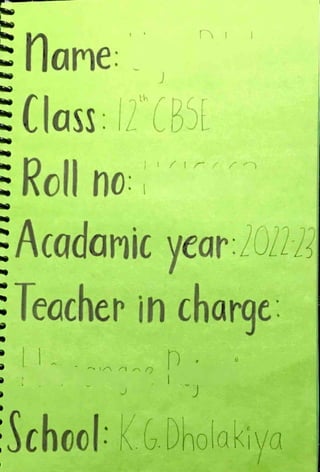 Name:
Class: 12th CBSE
Roll no:
Acadamic year: 2022-23
Teacher in charge:
School: K.G.Dholakiya